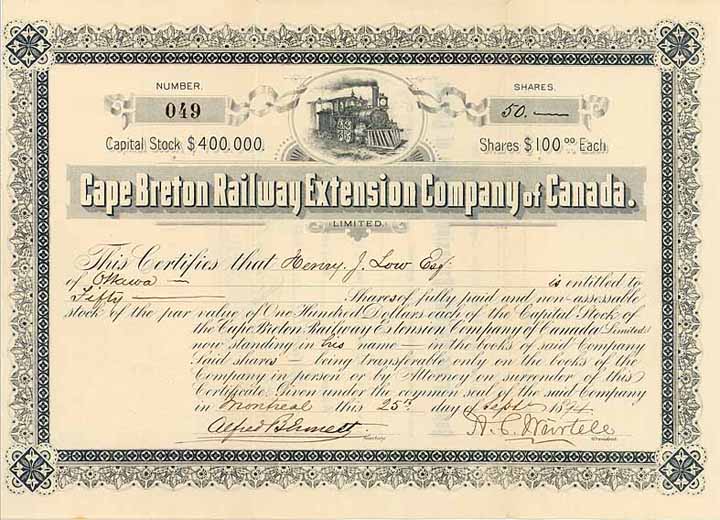 NUMBER.
049
Capital Stock $400,000.
SHARES.
50.—
Shares $100 00 Each.
Cape Breton Railway Extension Company of Canada.
LIMITED.
This Certifies that Henry J. Low Esq.
of Ottawa — is entitled to
Fifty — Shares of fully paid and non-assessable
stock of the par value of One Hundred Dollars each of the Capital Stock of
the Cape Breton Railway Extension Company of Canada (Limited)
now standing in his name — in the books of said Company
Said shares — being transferable only on the books of the
Company in person or by Attorney on surrender of this
Certificate. Given under the common seal of the said Company
in Montreal this 25th day of Sept 1894
Secretary
President